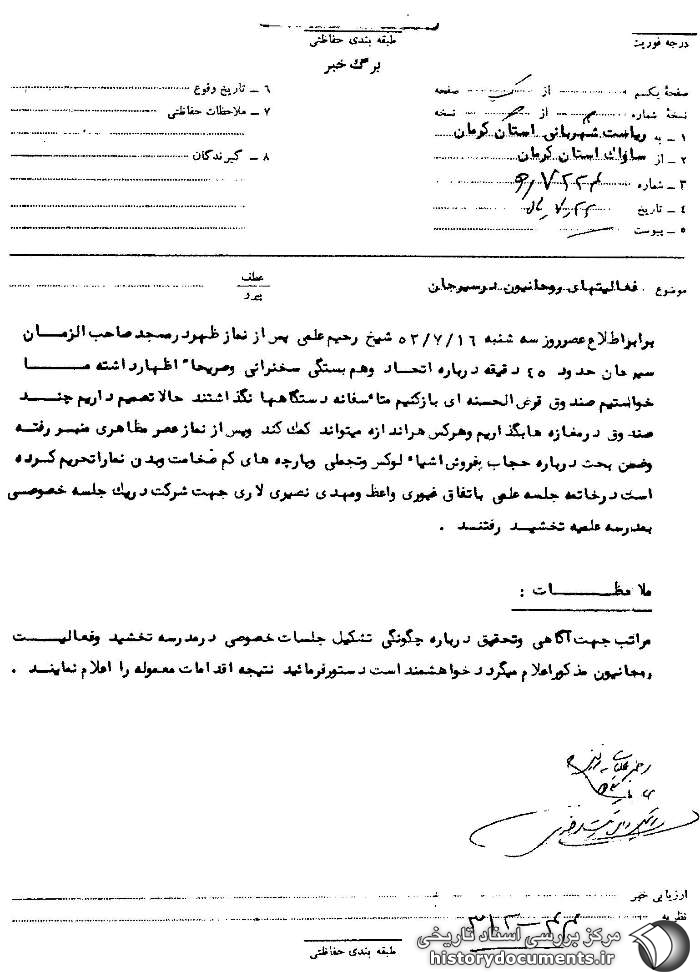 درجه فوریت
طبقه بندی حفاظتی
برگ خبر
صفحهٔ یکم از یک صفحه
نسخهٔ شماره از نسخه
۱ ـ به ریاست شهربانی استان کرمان
۲ ـ از ساواك استان کرمان
۳ ـ شماره
۴ ـ تاریخ
۵ ـ پیوست
۶ ـ تاریخ وقوع
۷ ـ ملاحظات حفاظتی
۸ ـ گیرندگان
موضوع فعالیتهای روحانیون درسیرجان
عطف
پیرو
برابر اطلاع عصر روز سه شنبه ۵۳/۷/۱۶ شیخ رحیم علمی پس از نماز ظهر در مسجد صاحب الزمان
سیرجان حدود ۴۵ دقیقه درباره اتحاد وهم بستگی سخنرانی وصریحاً اظهارداشته مــا
خواستیم صندوق قرض الحسنه ای بازکنیم متأسفانه دستگاهها نگذاشتند حالا تصمیم داریم چنــد
صندوق درمغازه هابگذاریم وهرکس هراندازه میتواند کمك کند وپس از نماز عصر مظاهری منبــر رفتـه
وضمن بحث درباره حجاب بفروش اشیاء لوکس وتجملی وپارچه های کم ضخامت وبدن نماراتحریم کـرده
است درخاتمه جلسه علمی باتفاق غیوری واعظ ومهدی نصیری لاری جهت شرکت دریك جلسه خصوصی
بمدرسه علمیه تخشیــد رفتنــد .
ملاحظــات :
مراتب جهت آگاهی وتحقیق درباره چگونگی تشکیل جلسات خصوصی درمدرسه تخشید وفعالیــت
روحانیون مذکور اعلام میگردد خواهشمند است دستورفرمائید نتیجه اقدامات معموله را اعلام نمایند .
ارزیابی خبر
نظریه
۳۱۲-۴۴
طبقه بندی حفاظتی
مرکز بررسی اسناد تاریخی
historydocuments.ir